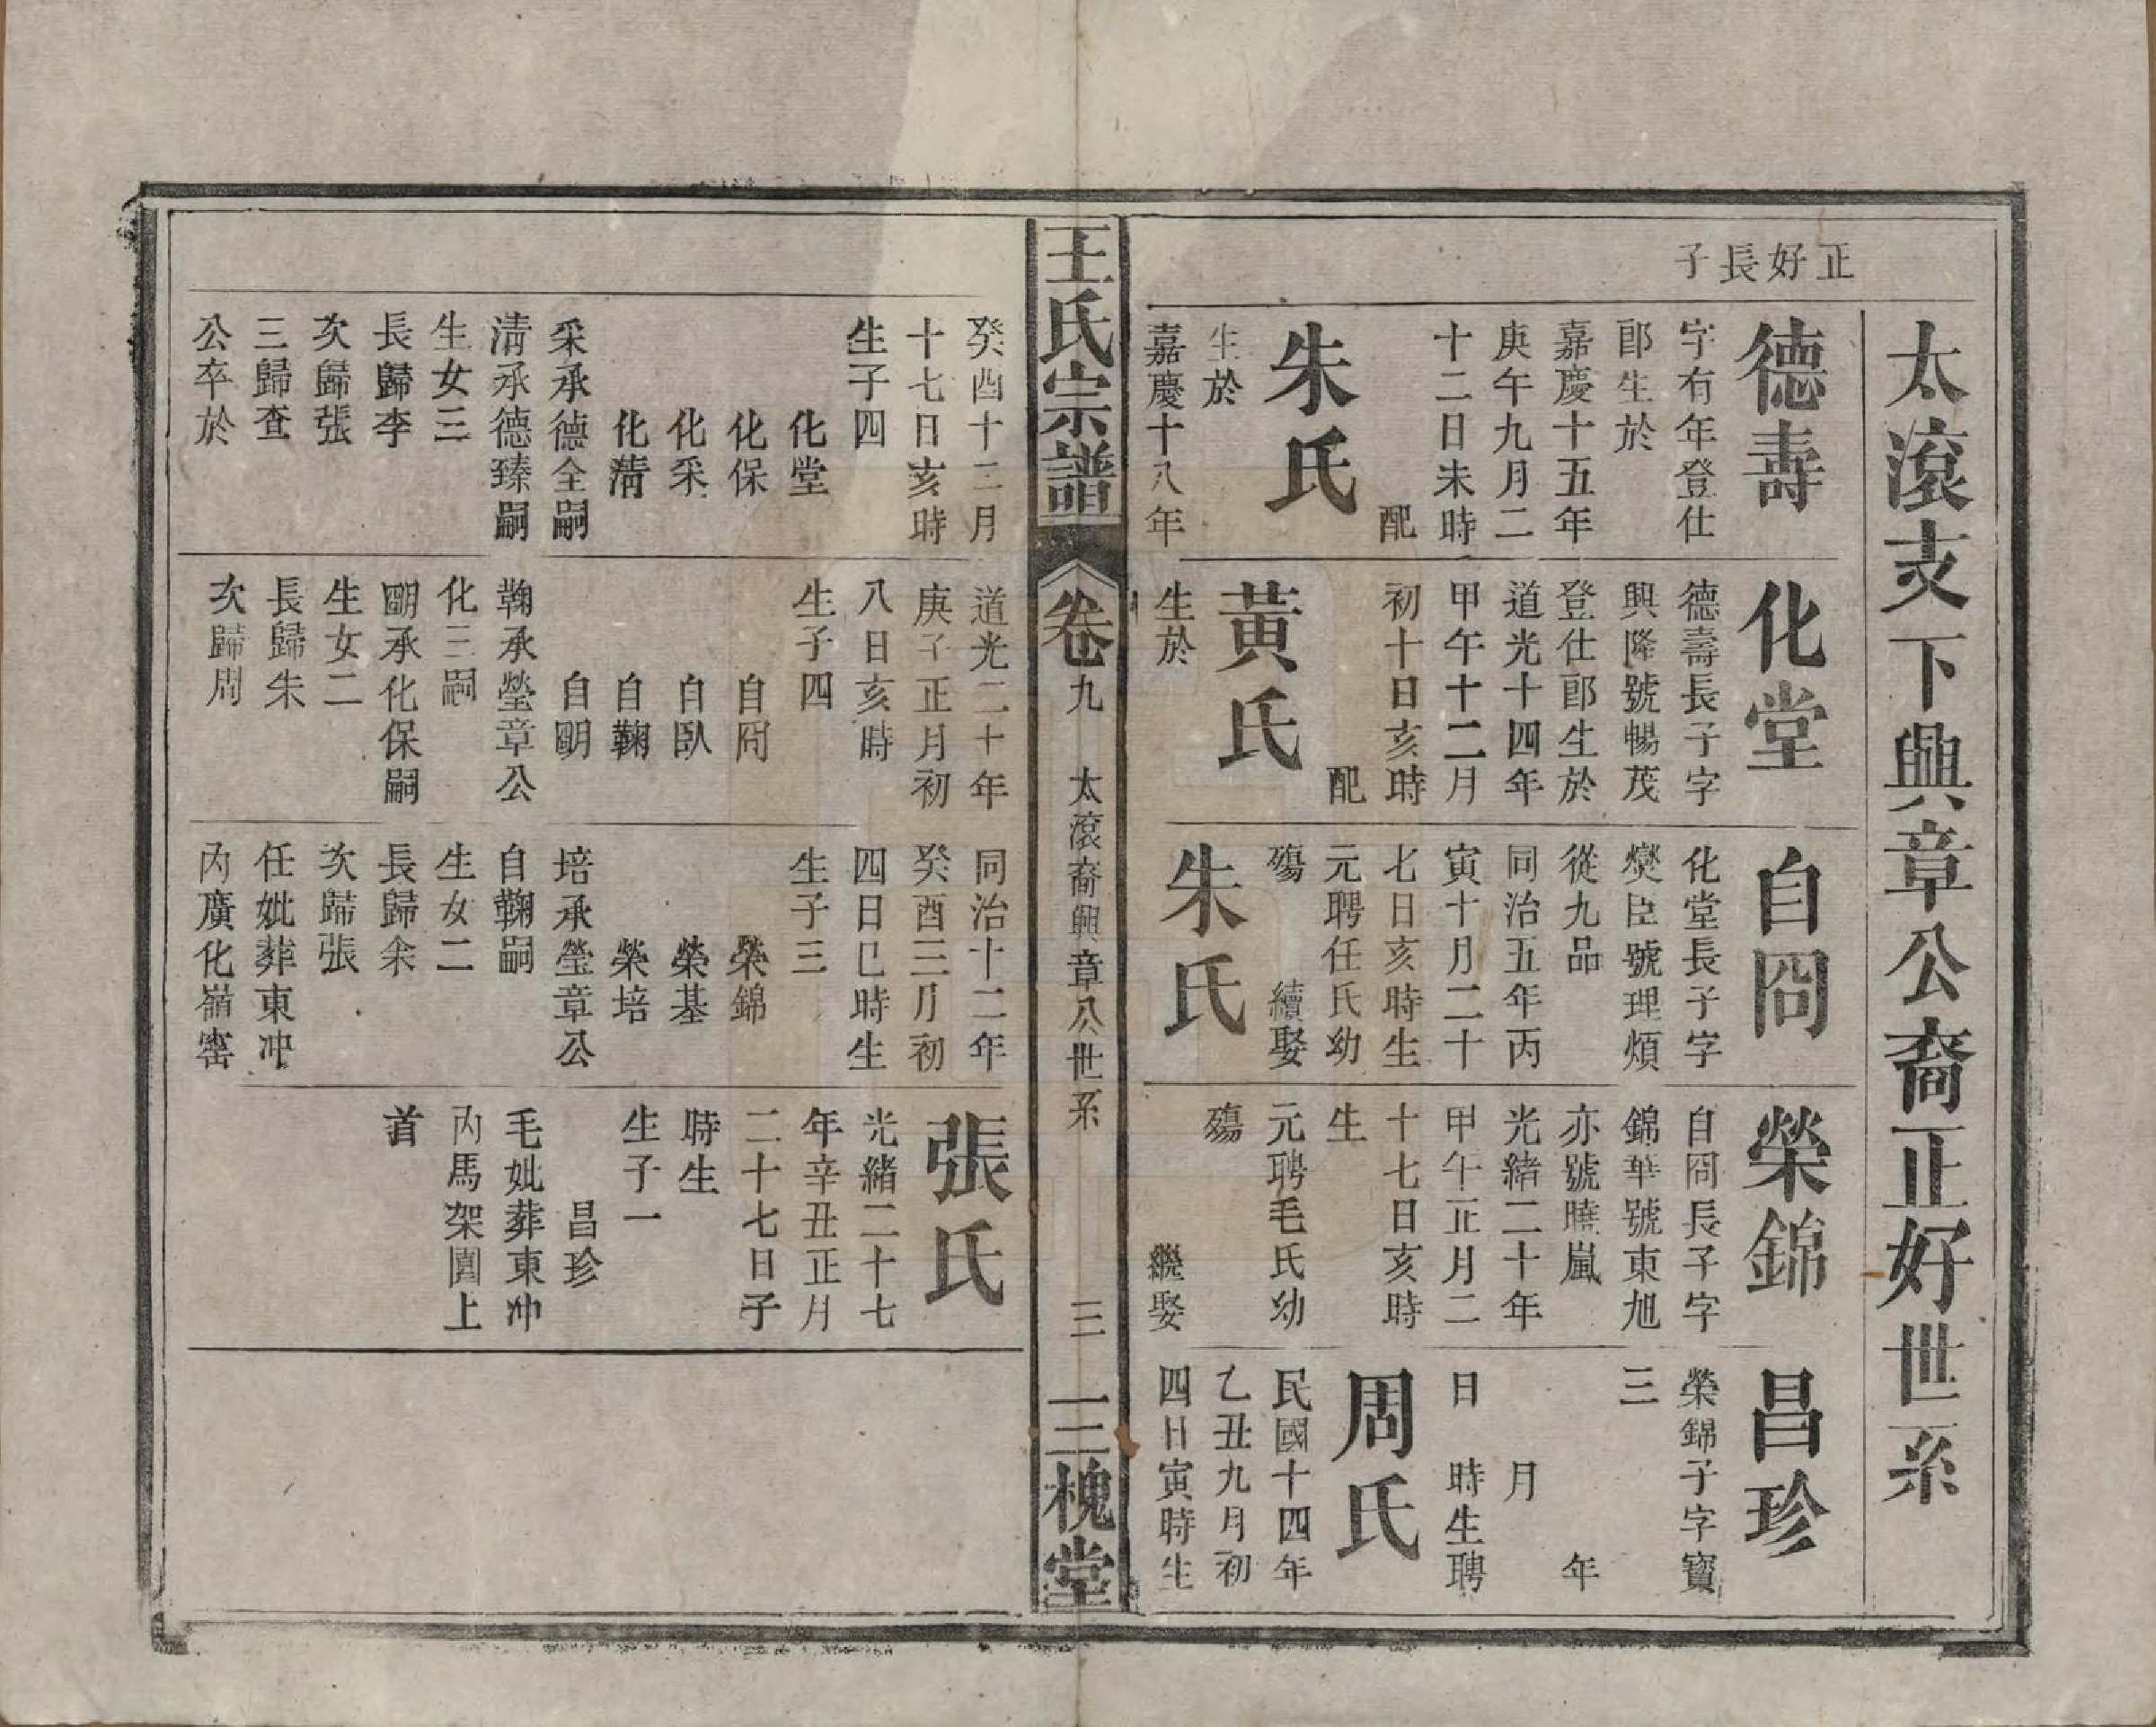 太滾支下興章公裔正好世系
正好長子
德壽
字有年登仕
郎生於
嘉慶十五年
庚午九月二
十二日未時
配
朱氏
生於
嘉慶十八年
化堂
德壽長子字
興隆號暢茂
登仕郎生於
道光十四年
甲午十二月
初十日亥時
配
黃氏
生於
自岡
化堂長子字
爕臣號理煩
從九品
同治五年丙
寅十月二十
七日亥時生
元聘任氏幼
殤 續娶
朱氏
榮錦
自岡長子字
錦華號東旭
亦號曉嵐
光緒二十年
甲午正月二
十七日亥時
生
元聘毛氏幼
殤
繼娶
昌珍
榮錦子字寶
三
年
月
日 時生聘
周氏
民國十四年
乙丑九月初
四日寅時生
王氏宗譜
卷九 太滾裔興章公世系
三
三槐堂
癸酉十二月
十七日亥時
生子四
化堂
化保
化采
化清
采承德全嗣
清承德臻嗣
生女三
長歸李
次歸張
三歸查
公卒於
道光二十年
庚子正月初
八日亥時
生子四
自岡
自臥
自鞠
自明
鞠承瑩章公
化三嗣
明承化保嗣
生女二
長歸朱
次歸周
同治十二年
癸酉三月初
四日巳時生
生子三
榮錦
榮基
榮培
培承瑩章公
自鞠嗣
生女二
長歸余
次歸張
任妣葬東冲
內廣化嶺窰
張氏
光緒二十七
年辛丑正月
二十七日子
時生
生子一
昌珍
毛妣葬東冲
內馬架園上
首